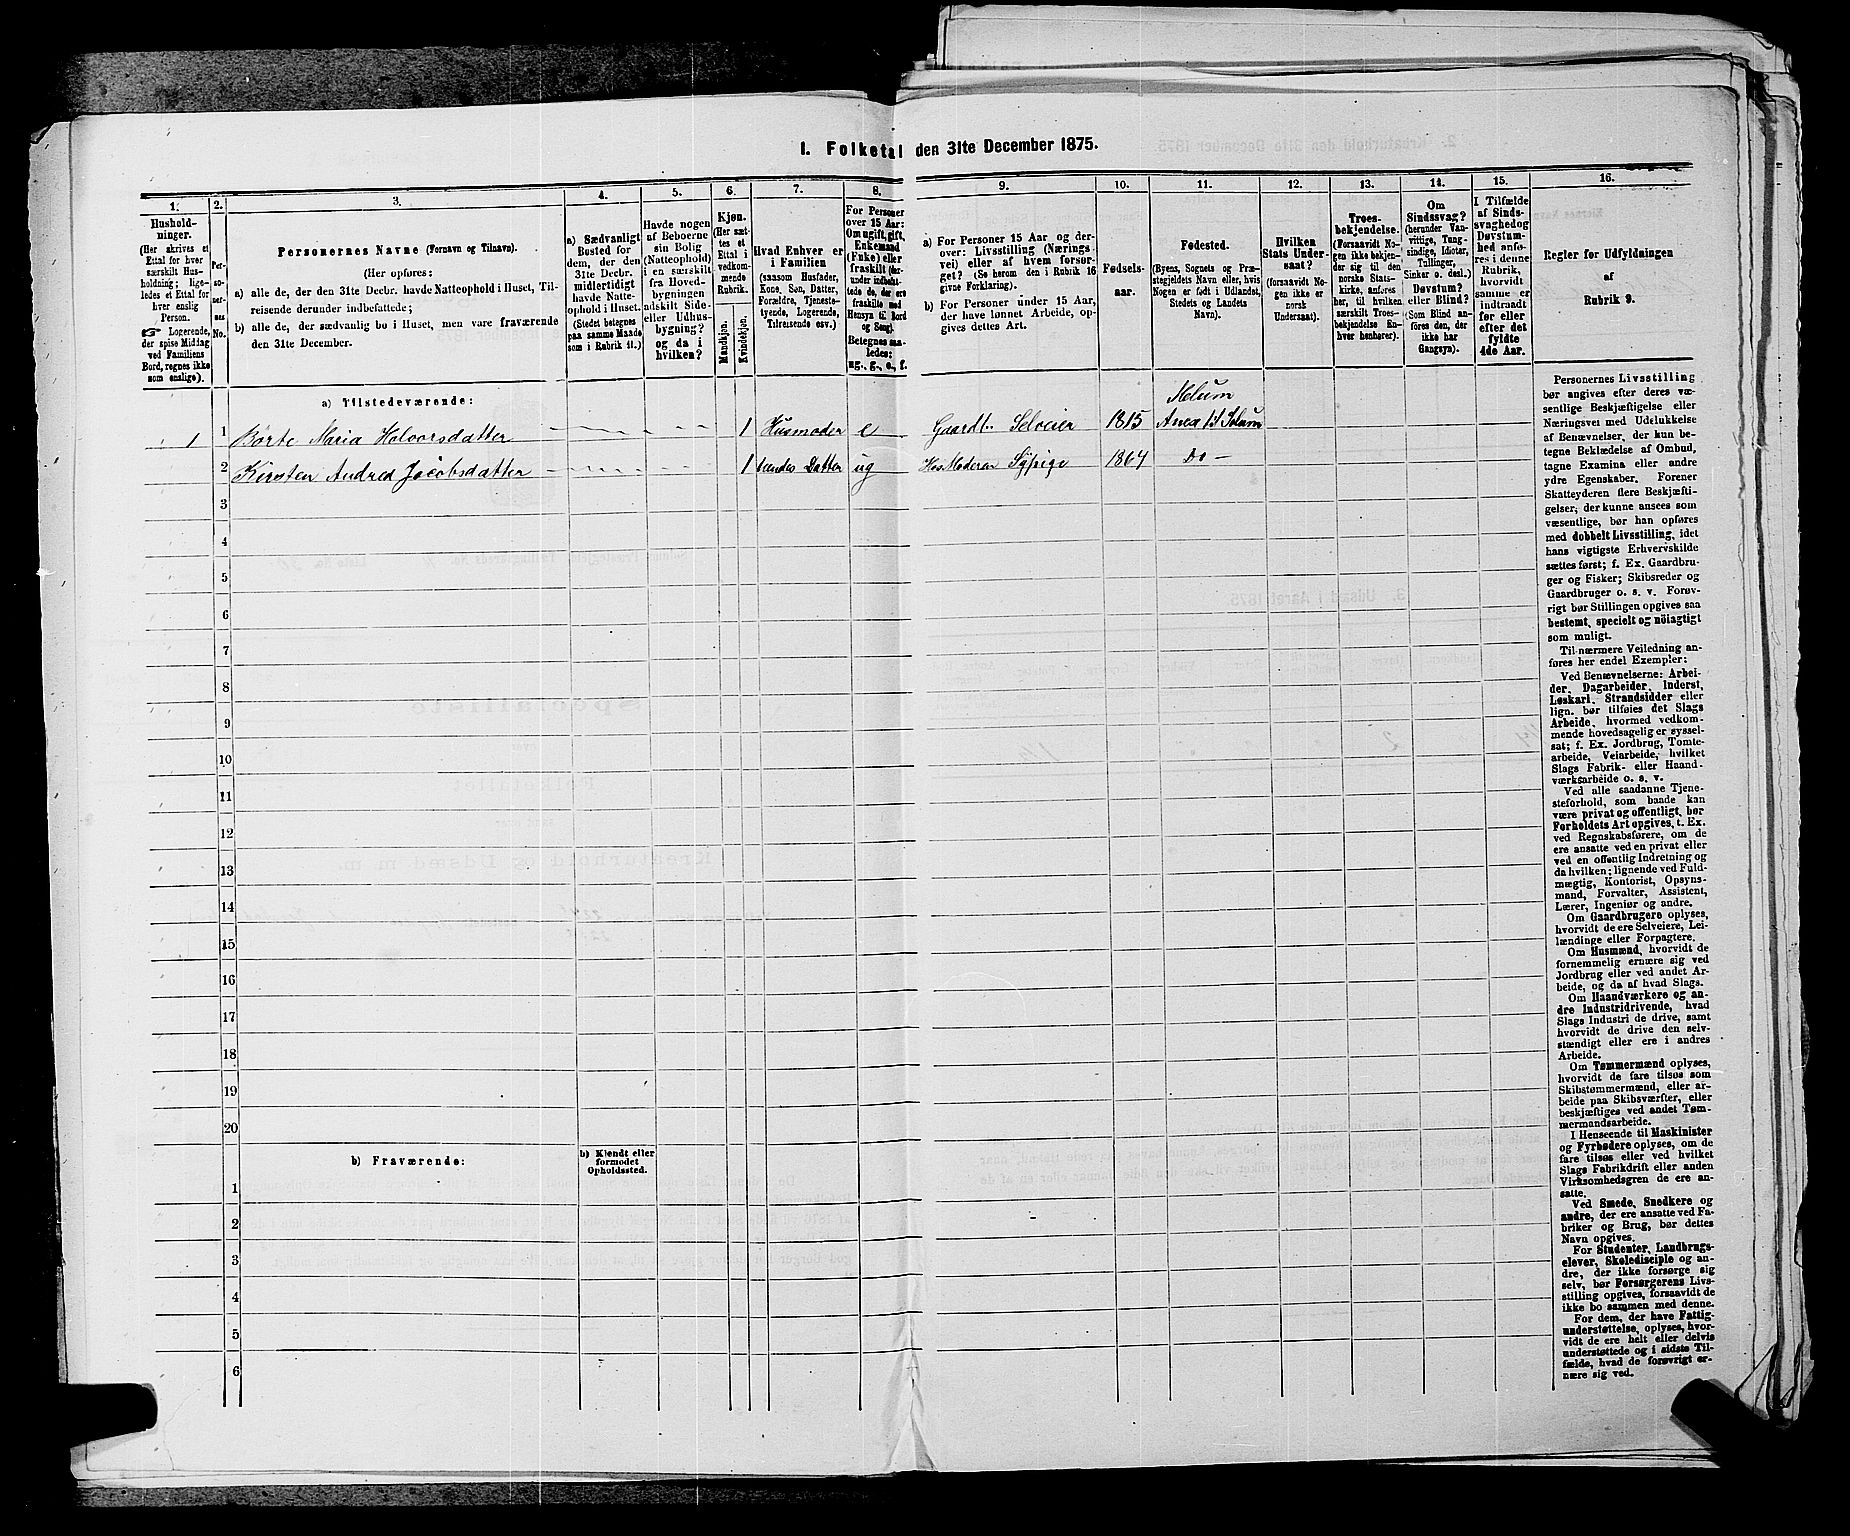 I. Folketal den 31te December 1875.
1.
Hushold-
ninger.
(Her skrives et
Ettal for hver
særskilt Hus-
holdning; lige-
ledes et Ettal for
hver enslig
Person.
☞ Logerende,
der spise Middag
ved Familiens
Bord, regnes ikke
som enslige).
2.
Per-
so-
ner-
nes
No.
3.
Personernes Navne (Fornavn og Tilnavn).
(Her opføres:
a) alle de, der den 31te Decbr. havde Natteophold i Huset, Til-
reisende derunder indbefattede;
b) alle de, der sædvanlig bo i Huset, men vare fraværende
den 31te December.
4.
a) Sædvanligt
Bosted for
dem, der den
31te Decbr.
midlertidigt
havde Natte-
ophold i Huset.
(Stedet betegnes
paa samme Maade
som i Rubrik 11.)
5.
Havde nogen
af Beboerne
sin Bolig
(Natteophold)
i en særskilt
fra Hoved-
bygningen
adskilt Side-
eller Udhus-
bygning?
og da i
hvilken?
6.
Kjøn.
(Her sæt-
tes et
Ettal i
vedkom-
mende
Rubrik.
Mandkjøn.
Kvindekjøn.
7.
Hvad Enhver er
i Familien
(saasom Husfader,
Kone, Søn, Datter,
Forældre, Tjeneste-
tyende, Logerende,
Tilreisende osv.)
8.
For Personer
over 15 Aar:
Om ugift, gift,
Enkemand
(Enke) eller
fraskilt
Betegnes saa-
ledes:
ug., g., e., f.
9.
a) For Personer 15 Aar og der-
over: Livsstilling (Nærings-
vei) eller af hvem forsør-
get? (Se herom den i Rubrik 16
givne Forklaring).
b) For Personer under 15 Aar,
der have lønnet Arbeide, op-
gives dettes Art.
10.
Fødsels-
aar.
11.
Fødested.
(Byens, Sognets og Præ-
stegjeldets Navn eller, hvis
Nogen er født i Udlandet,
Stedets og Landets
Navn).
12.
Hvilken
Stats Under-
saat?
(forsaavidt No-
gen ikke er
norsk
Undersaat).
13.
Troes-
bekjendelse.
(Forsaavidt No-
gen ikke bekjen-
der sig til den
norske Stats-
kirke, anføres
her, til hvilken
særskilt Troes-
bekjendelse En-
hver henhører).
14.
Om
Sindssvag?
(herunder Van-
vittige, Tung-
sindige, Idioter,
Tullinger,
Sinker o. desl.)
Døvstum?
eller Blind?
(Som Blind an-
føres den, der
ikke har
Gangsyn).
15.
I Tilfælde
af Sinds-
svaghed og
Døvstum-
hed anfø-
res i denne
Rubrik,
hvorvidt
samme er
indtraadt
før eller
efter det
fyldte
4de Aar.
16.
Regler for Udfyldningen
af
Rubrik 9.
a) Tilstedeværende:
1 1 Børte Maria Holvorsdatter 1 Husmoder e Gaardb. Selveier 1815 Melum
2 Kirsten Andrea Jacobsdatter 1 hendes Datter ug Hos Moderen Sypige 1864 Do –
3
4
5
6
7
8
9
10
11
12
13
14
15
16
17
18
19
20
b) Fraværende:
b) Kjendt eller
formodet
Opholdssted.
1
2
3
4
5
6
Personernes Livsstilling
bør angives efter deres væ-
sentlige Beskjæftigelse eller
Næringsvei med Udelukkelse
af Benævnelser, der kun be-
tegne Beklædelse af Ombud,
tagne Examina eller andre
ydre Egenskaber. Forener
Skatteyderen flere Beskjæfti-
gelser, der kunne ansees som
væsentlige, bør han opføres
med dobbelt Livsstilling, idet
hans vigtigste Erhvervskilde
sættes først; f. Ex. Gaardbru-
ger og Fisker; Skibsreder og
Gaardbruger o. s. v. Forøv-
rigt bør Stillingen opgives saa
bestemt, specielt og nöiagtigt
som muligt.
Til nærmere Veiledning an-
føres her endel Exempler:
Ved Benævnelserne: Arbei-
der, Dagarbeider, Inderst,
Løskarl, Strandsidder eller
lign. bør tilføies det Slags
Arbeide, hvormed vedkom-
mende hovedsagelig er syssel-
sat; f. Ex. Jordbrug, Tomte-
arbeide, Veiarbeide, hvilket
Slags Fabrik- eller Haand-
værksarbeide o. s. v.
Ved alle saadanne Tjene-
steforhold, som baade kan
være privat og offentligt, bør
Forholdets Art opgives, t. Ex.
ved Regnskabsførere, om de
ere ansatte ved en privat eller
ved en offentlig Indretning og
da hvilken; lignende ved Fuld-
mægtig, Kontorist, Opsyns-
mand, Forvalter, Assistent,
Lærer, Ingeniør og andre.
Om Gaardbrugere oplyses,
hvorvidt de ere Selveiere, Lei-
lændinge eller Forpagtere.
Om Husmænd, hvorvidt de
fornemmelig ernære sig ved
Jordbrug eller ved andet Ar-
beide, og da af hvad Slags.
Om Haandværkere og an-
dre Industridrivende, hvad
Slags Industri de drive, samt
hvorvidt de drive den selv-
stændigt eller ere i andres
Arbeide.
Om Tømmermænd oplyses,
hvorvidt de fare tilsøs som
Skibstømmermænd, eller ar-
beide paa Skibsværfter, eller
beskjæftiges ved andet Tøm-
mermandsarbeide.
I Henseende til Maskinister
og Fyrbødere oplyses, om de
fare tilsøs eller ved hvilket
Slags Fabrikdrift eller anden
Virksomhedsgren de ere an-
satte.
Ved Smede, Snedkere og
andre, der ere ansatte ved Fa-
briker og Brug, bør dettes
Navn opgives.
For Studenter, Landbrugs-
elever, Skoledisciple og an-
dre, der ikke forsørge sig
selv, bør Forsørgerens Livs-
stilling opgives, forsaavidt de
ikke bo sammen med denne.
For dem, der have Fattig-
understøttelse, oplyses, hvor-
vidt de ere helt eller delvis
understøttede og i sidste Til-
fælde, hvad de forøvrigt er-
nære sig ved.